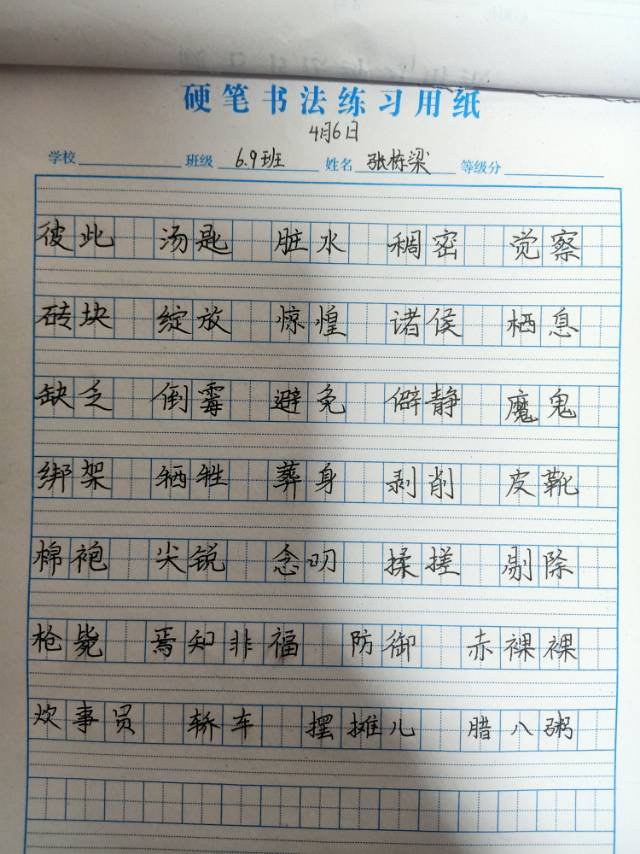 硬笔书法练习用纸
4月6日
学校 班级 6.9班 姓名 张栋梁 等级分
彼此 汤匙 脏水 稠密 觉察
砖块 绽放 惊惶 诸侯 栖息
缺乏 倒霉 避免 僻静 魔鬼
绑架 牺牲 葬身 剥削 皮靴
棉袍 尖锐 念叨 揉搓 剔除
枪毙 焉知非福 防御 赤裸裸
炊事员 轿车 摆摊儿 腊八粥